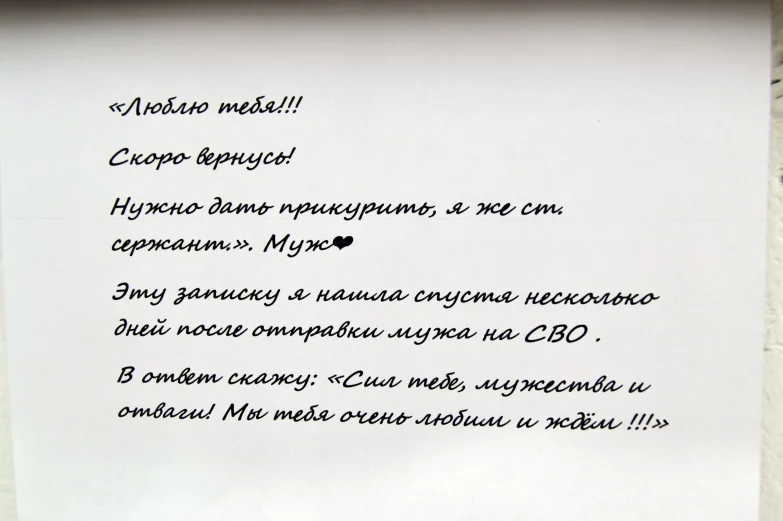 «Люблю тебя!!!
Скоро вернусь!
Нужно дать прикурить, я же ст.
сержант.». Муж❤
Эту записку я нашла спустя несколько
дней после отправки мужа на СВО .
В ответ скажу: «Сил тебе, мужества и
отваги! Мы тебя очень любим и ждём !!!»